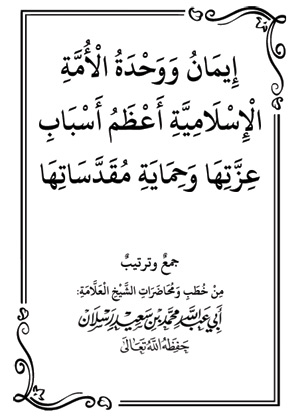 إِيمَانُ وَوَحْدَةُ الْأُمَّةِ
الْإِسْلَامِيَّةِ أَعْظَمُ أَسْبَابِ
عِزَّتِهَا وَحِمَايَةِ مُقَدَّسَاتِهَا
جمعٌ وترتيبٌ
مِنْ خُطَبِ وَمُحَاضَرَاتِ الشَّيْخِ الْعَلَّامَةِ:
أَبِي عَبْدِ اللَّهِ مُحَمَّدِ بْنِ سَعِيدٍ رَسْلَانَ
حَفِظَهُ اللَّهُ تَعَالَى